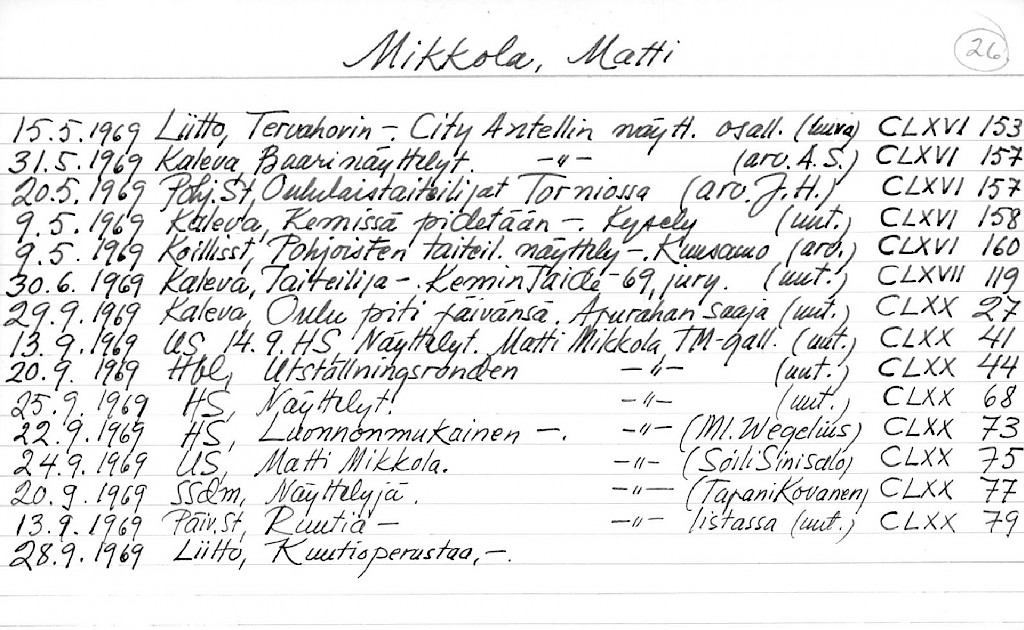 Mikkola, Matti 26
15.5.1969 Liitto, Tervahovin -. City Axtellin näytt. osall. (kuva) CLXVI 153
31.5.1969 Kaleva, Baarinäyttelyt. -"- (arv. A.S.) CLXVI 157
20.5.1969 Pohj.St, Oululaistaiteilijat Torniossa (arv. J.H.) CLXVI 157
9.5.1969 Kaleva, Kemissä pidetään -. Kysely (uut.) CLXVI 158
9.5.1969 Koillisst, Pohjoisten taiteil. näyttely -. Kuusamo (arv.) CLXVI 160
30.6.1969 Kaleva, Taiteilija -. Kemin Taide -69, jury. (uut.) CLXVII 119
29.9.1969 Kaleva, Oulu piti päivänsä. Apurahan saaja (uut.) CLXX 27
13.9.1969 US, 14.9. HS Näyttelyt. Matti Mikkola, TM-gall. (uut.) CLXX 41
20.9.1969 Hbl, Utställningsronden -"- (uut.) CLXX 44
25.9.1969 HS, Näyttelyt. -"- (uut.) CLXX 68
22.9.1969 HS, Luonnonmukainen -. -"- (Ml. Wegelius) CLXX 73
24.9.1969 US, Matti Mikkola. -"- (Soili Sinisalo) CLXX 75
20.9.1969 SSdm, Näyttelyjä. -"- (Tapani Kovanen) CLXX 77
13.9.1969 Päiv.St, Ruutia - -"- listassa (uut.) CLXX 79
28.9.1969 Liitto, Kuutioperustaa, -.